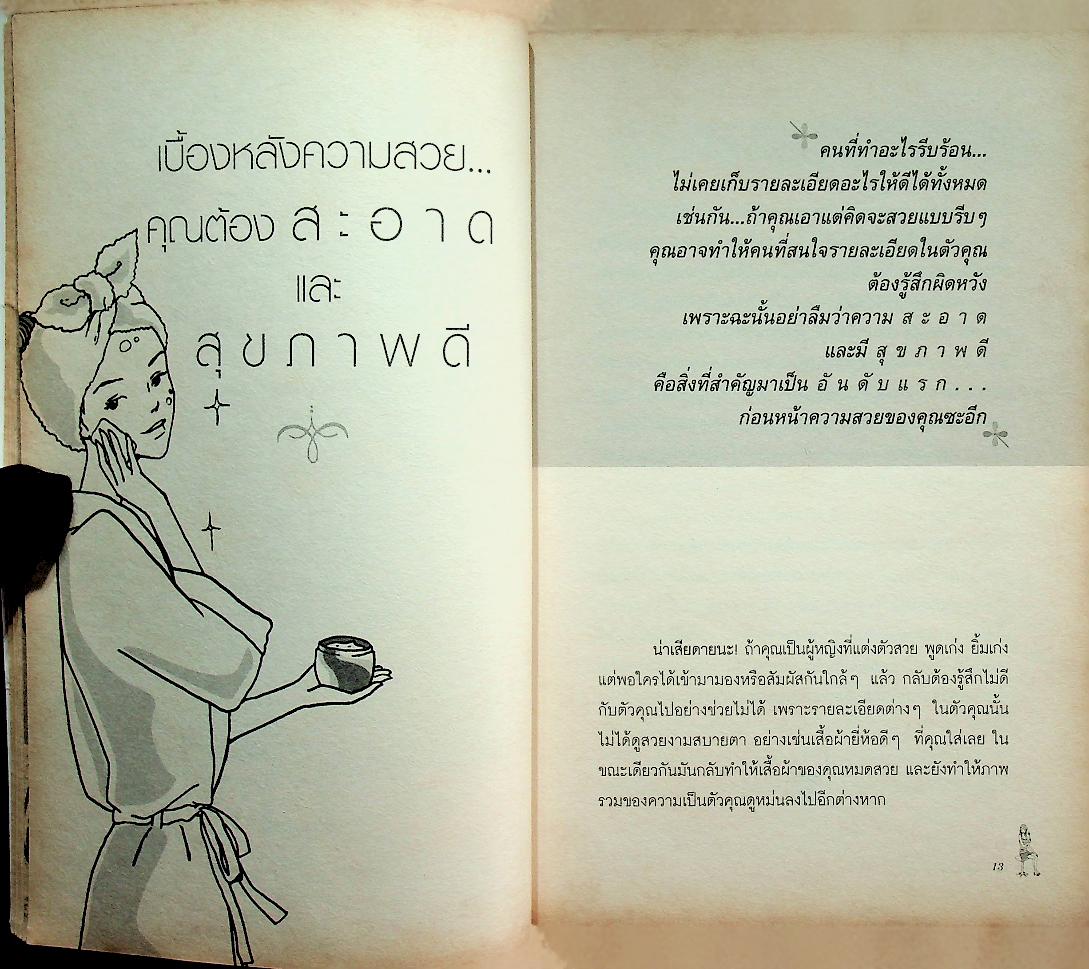 เบื้องหลังความสวย...
คุณต้อง ส ะ อ า ด
และ
สุ ข ภ า พ ดี
คนที่ทำอะไรรีบร้อน...
ไม่เคยเก็บรายละเอียดอะไรให้ดีได้ทั้งหมด
เช่นกัน...ถ้าคุณเอาแต่คิดจะสวยแบบรีบๆ
คุณอาจทำให้คนที่สนใจรายละเอียดในตัวคุณ
ต้องรู้สึกผิดหวัง
เพราะฉะนั้นอย่าลืมว่าความ ส ะ อ า ด
และมี สุ ข ภ า พ ดี
คือสิ่งที่สำคัญมาเป็น อั น ดั บ แ ร ก . . .
ก่อนหน้าความสวยของคุณซะอีก
น่าเสียดายนะ! ถ้าคุณเป็นผู้หญิงที่แต่งตัวสวย พูดเก่ง ยิ้มเก่ง
แต่พอใครได้เข้ามามองหรือสัมผัสกันใกล้ๆ แล้ว กลับต้องรู้สึกไม่ดี
กับตัวคุณไปอย่างช่วยไม่ได้ เพราะรายละเอียดต่างๆ ในตัวคุณนั้น
ไม่ได้ดูสวยงามสบายตา อย่างเช่นเสื้อผ้ายี่ห้อดีๆ ที่คุณใส่เลย ใน
ขณะเดียวกันมันกลับทำให้เสื้อผ้าของคุณหมดสวย และยังทำให้ภาพ
รวมของความเป็นตัวคุณดูหม่นลงไปอีกต่างหาก
13